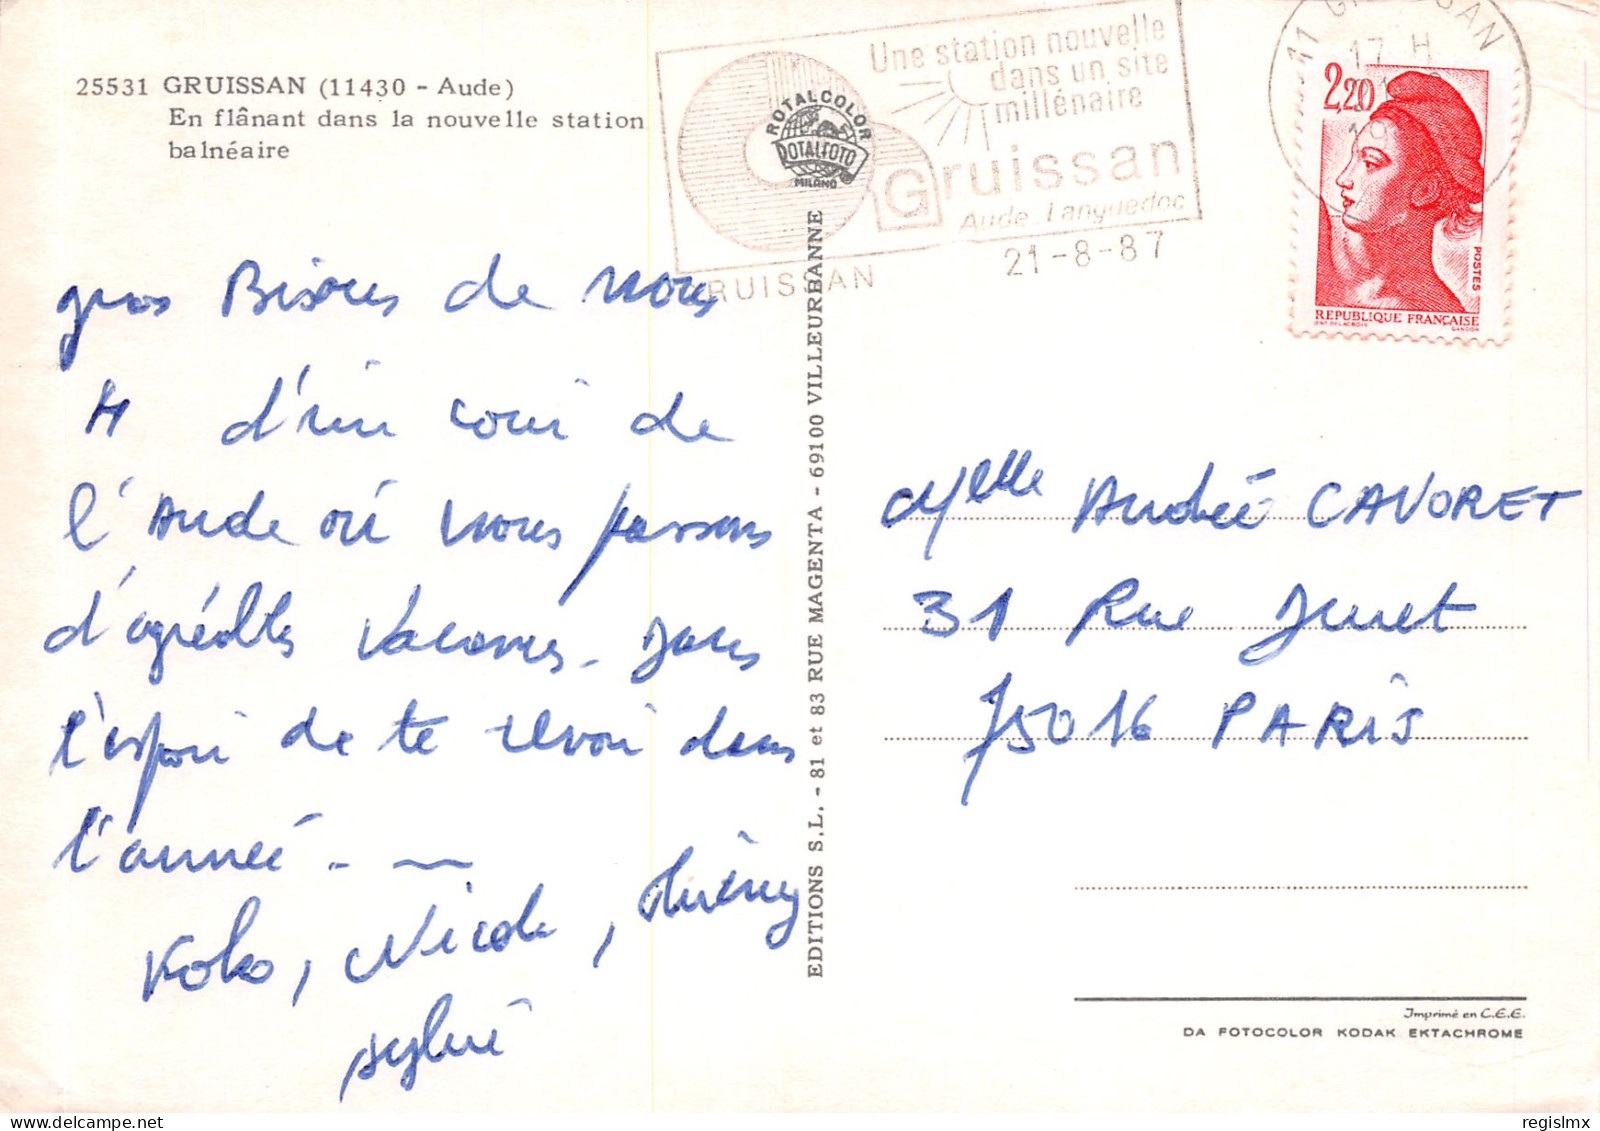 25531 GRUISSAN (11430 - Aude)
En flânant dans la nouvelle station
balnéaire
ROTALCOLOR
ROTALFOTO
MILANO
Une station nouvelle
dans un site
millénaire
Gruissan
Aude Languedoc
GRUISSAN
21-8-87
11 GRUISSAN
17 H
2,20
POSTES
REPUBLIQUE FRANÇAISE
D'APRES DELACROIX
GANDON
gros Bisous de nous
4 d'un coin de
l'Aude où nous passons
d'agréables vacances - Dans
l'espoir de te revoir dans
l'année - ~
Koko, Nicole, Thierry
Sylvie
EDITIONS S.L. - 81 et 83 RUE MAGENTA - 69100 VILLEURBANNE
Melle Andrée CAVORET
31 Rue Jouvet
75016 PARIS
Imprimé en C.E.E.
DA FOTOCOLOR KODAK EKTACHROME
regislmx